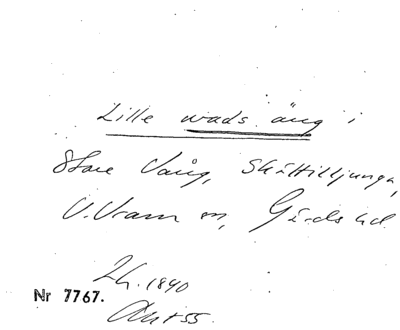 Lille wads äng i
Store Vång, Skättilljunga,
V. Vram sn, Gärds hd.
Lh. 1890
Nr 7767.
Akt 55.